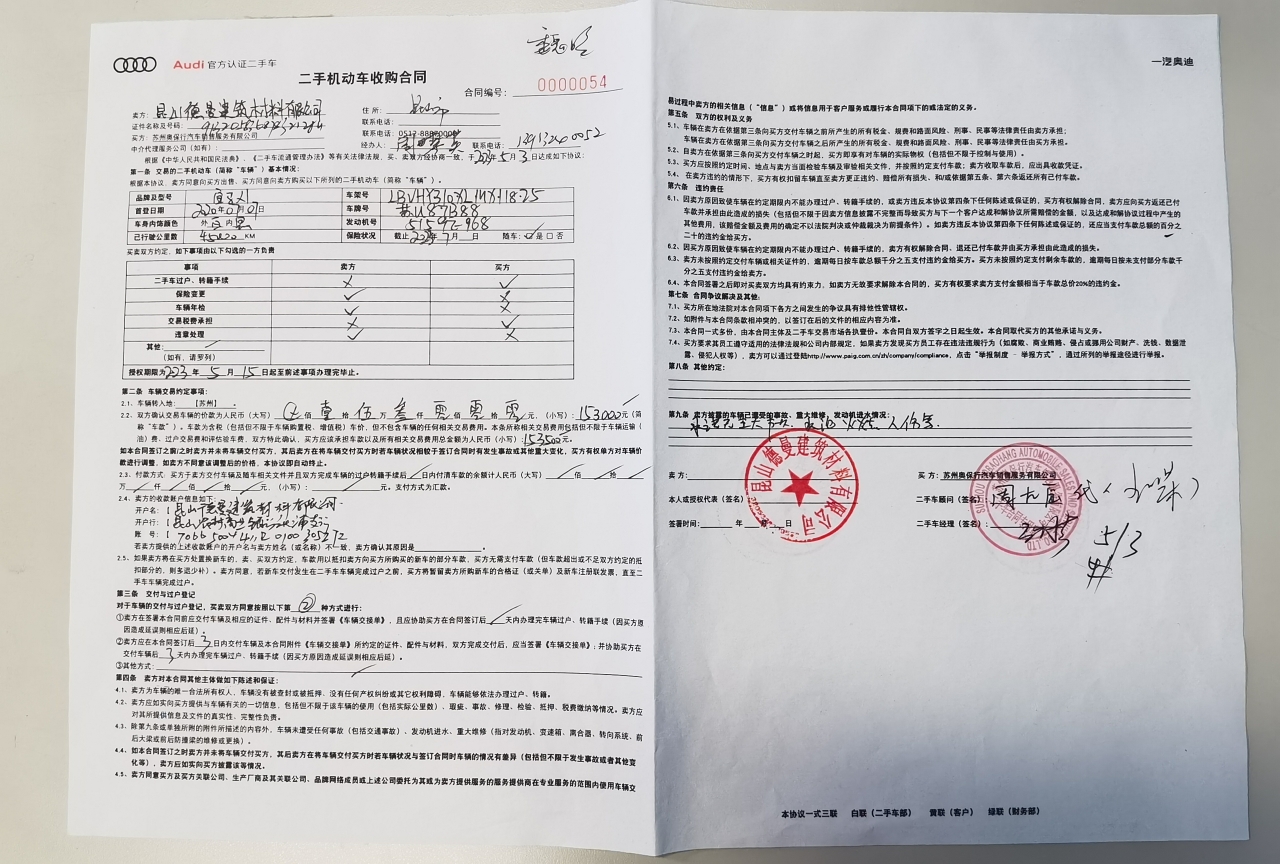 Audi 官方认证二手车
二手机动车收购合同
合同编号: 0000054
卖方: 昆山德曼建筑材料有限公司 住所: 昆山市
证件名称及号码: 联系电话:
买方: 苏州奥保行汽车销售服务有限公司 联系电话: 0512-88860000
中介代理服务公司(如有): 经办人: 联系电话: 0052
根据《中华人民共和国民法典》、《二手车流通管理办法》等有关法律法规,买、卖双方经协商一致,于 2023年5月3日达成如下协议:
第一条 交易的二手机动车(简称“车辆”)基本情况:
根据本协议,卖方同意向买方出售、买方同意向卖方购买以下所列的二手机动车(简称“车辆”)。
品牌及型号 车架号
首登日期 车牌号 苏U87B88
车身内饰颜色 外 内 发动机号
已行驶公里数 KM 保险状况 截止 年7月 日 随车: 是 □ 否
买卖双方约定,如下事项由以下勾选的一方负责
事项 卖方 买方
二手车过户、转籍手续 × ✓
保险变更 ✓ ×
车辆年检 ✓ ×
交易税费承担 × ✓
违章处理 ✓ ×
其他:
(如有,请罗列)
授权期限为2023年5月15日起至前述事项办理完毕止。
第二条 车辆交易约定事项:
2.1、车辆转入地:【苏州】.
2.2、双方确认交易车辆的价款为人民币(大写) 佰 壹 拾 伍 万 叁 仟 零 佰 零 拾 零 元,(小写):153000元(简
称“车款”)。车款为含税(包括但不限于车辆购置税、增值税)车价,但不包含车辆的任何相关交易费用。本条所称相关交易费用包括但不限于车辆运输(
油)费、过户交易费和评估验车费,双方特此确认,买方应该承担车款以及所有相关交易费用总金额为人民币(小写):153500元。
如本合同签订之前/之时卖方并未将车辆交付买方,其后卖方在将车辆交付买方时若车辆状况相较于签订合同时有发生事故或其他重大变化,买方有权单方对车辆价
款进行调整,如卖方不同意该调整后的价格,本协议即自动终止。
2.3、付款方式:买方于卖方交付车辆及随车相关文件并且双方完成车辆的过户转籍手续后 日内付清车款的余额计人民币(大写) 佰 拾
万 仟 佰 拾 元,(小写): 元。支付方式为汇款。
2.4、卖方的收款账户信息如下:
开户名:【昆山德曼建筑材料有限公司
开户行:【
账 号:【
若卖方提供的上述收款账户的开户名与卖方姓名(或名称)不一致,卖方确认其原因是 。
2.5、如果卖方将在买方处置换新车的,卖、买双方约定,车款用以抵扣卖方向买方所购买的新车的部分车款,买方无需支付车款(但车款超出或不足双方约定的抵
扣部分的,则多退少补)。卖方同意,若新车交付发生在二手车车辆完成过户之前,买方将暂留卖方所购新车的合格证(或关单)及新车注册联发票,直至二
手车车辆完成过户。
第三条 交付与过户登记
对于车辆的交付与过户登记,买卖双方同意按照以下第 ② 种方式进行:
①卖方在签署本合同前应交付车辆及相应的证件、配件与材料并签署《车辆交接单》,且应协助买方在合同签订后 天内办理完车辆过户、转籍手续(因买方原
因造成延误则相应后延)。
②卖方应在本合同签订后3日内交付车辆及本合同附件《车辆交接单》所约定的证件、配件与材料,双方完成交付后,应当签署《车辆交接单》;并协助买方在
交付车辆后3天内办理完车辆过户、转籍手续(因买方原因造成延误则相应后延)。
③其他方式:
第四条 卖方对本合同其他主体做如下陈述和保证:
4.1、卖方为车辆的唯一合法所有权人,车辆没有被查封或被抵押、没有任何产权纠纷或其它权利障碍,车辆能够依法办理过户、转籍。
4.2、卖方应如实向买方提供与车辆有关的一切信息,包括但不限于该车辆的使用(包括实际公里数)、瑕疵、事故、修理、检验、抵押、税费缴纳等情况。卖方应
对其所提供信息及文件的真实性、完整性负责。
4.3、除第九条或单独所附的附件所描述的内容外,车辆未遭受任何事故(包括交通事故)、发动机进水、重大维修(指对发动机、变速箱、离合器、转向系统、前
后大梁或前后防撞梁的维修或更换)。
4.4、如本合同签订之时卖方并未将车辆交付买方,其后卖方在将车辆交付买方时若车辆状况与签订合同时车辆的情况有差异(包括但不限于发生事故或者其他变
化等),卖方应如实向买方披露该等情况。
4.5、卖方同意买方及买方关联公司、生产厂商及其关联公司、品牌网络成员或上述公司委托为其或为卖方提供服务的服务提供商在专业服务的范围内使用车辆交
一汽奥迪
易过程中卖方的相关信息(“信息”)或将信息用于客户服务或履行本合同项下的或法定的义务。
第五条 双方的权利及义务
5.1、车辆在卖方在依据第三条向买方交付车辆之前所产生的所有税金、规费和路面风险、刑事、民事等法律责任由卖方承担;
车辆在卖方在依据第三条向买方交付车辆之后所产生的所有税金、规费和路面风险、刑事、民事等法律责任由买方承担。
5.2、自卖方在依据第三条向买方交付车辆之时起,买方即享有对车辆的实际物权(包括但不限于控制与使用)。
5.3、买方应按照约定时间、地点与卖方当面检验车辆及审验相关文件,并按照约定支付车款;卖方收取车款后,应出具收款凭证。
5.4、在卖方违约的情形下,买方有权扣留车辆直至卖方更正违约、赔偿所有损失、和/或依据第五条、第六条返还所有已付车款。
第六条 违约责任
6.1、因卖方原因致使车辆在约定期限内不能办理过户、转籍手续的,或卖方违反本协议第四条下任何陈述或保证的,买方有权解除合同,卖方应向买方返还已付
车款并承担由此造成的损失(包括但不限于因卖方信息披露不完整而导致买方与下一个客户达成和解协议所需赔偿的金额,以及达成和解协议过程中产生的
其他费用,该赔偿金额及费用的确定不以法院判决或仲裁裁决为前提条件)。如卖方违反本协议第四条下任何陈述或保证的,还应当支付车款总额的百分之
二十的违约金给买方。
6.2、因买方原因致使车辆在约定期限内不能办理过户、转籍手续的,卖方有权解除合同、退还已付车款并由买方承担由此造成的损失。
6.3、卖方未按照约定交付车辆或相关证件的,逾期每日按车款总额千分之五支付违约金给买方。买方未按照约定支付剩余车款的,逾期每日按未支付部分车款千
分之五支付违约金给卖方。
6.4、本合同签署之后即对买卖双方均具有约束力,如卖方无故要求解除本合同的,买方有权要求卖方支付金额相当于车款总价20%的违约金。
第七条 合同争议解决及其他:
7.1、买方所在地法院对本合同项下各方之间发生的争议具有排他性管辖权。
7.2、如附件与本合同条款相冲突的,以签订在后的文件的相应内容为准。
7.3、本合同一式多份,由本合同主体及二手车交易市场各执壹份。本合同自双方签字之日起生效。本合同取代买方的其他承诺与义务。
7.4、买方要求其员工遵守适用的法律法规和公司内部规定,如果卖方发现买方员工存在违法违规行为(如腐败、商业贿赂、侵占或挪用公司财产、洗钱、数据泄
露、侵犯人权等),卖方可以通过登陆http://www.paig.com.cn/zh/company/compliance,点击“举报制度 - 举报方式”,通过所列的举报途径进行举报。
第八条 其他约定:
第九条 卖方披露的车辆已遭受的事故、重大维修、发动机进水情况:
卖 方: 买 方: 苏州奥保行汽车销售服务有限公司
昆山德曼建筑材料有限公司
本人或授权代表(签名): 二手车顾问(签名):
签署时间: 年 月 日 二手车经理(签名): 5/3
本协议一式三联 白联(二手车部) 黄联(客户) 绿联(财务部)